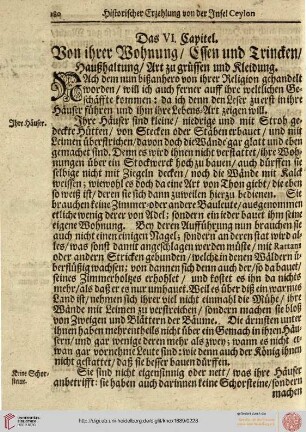 180 Historischer Erzehlung von der Insel Ceylon
Das VI. Capitel.
Von ihrer Wohnung/ Essen und Trincken/
Haußhaltung/ Art zu grüssen und Kleidung.
NAch dem nun bißanhero von ihrer Religion gehandelt
worden/ will ich auch ferner auff ihre weltlichen Ge-
schäffte kommen: da ich denn den Leser zuerst in ihre
Häuser führen und ihm ihre Lebens-Art zeigen will.
Ihre Häuser.
Ihre Häuser sind klein/ niedrige und mit Stroh ge-
deckte Hütten/ von Stecken oder Stäben erbauet/ und mit
Leimen überstrichen/ davon doch die Wände gar glatt und eben
gemachet sind. Denn es wird ihnen nicht verstattet/ ihre Woh-
nungen über ein Stockwerck hoch zu bauen/ auch dürffen sie
selbige nicht mit Ziegeln decken/ noch die Wände mit Kalck
weissen; wiewohl es doch da eine Art von Thon giebt/ die eben
so weiß ist/ deren sie sich dann zuweilen hierzu bedienen. Sie
brauchen keine Zimmer- oder andere Bauleute/ ausgenommen
etliche wenig derer von Adel; sondern ein ieder bauet ihm seine
eigene Wohnung. Bey deren Aufführung nun brauchen sie
auch nicht einen einigen Nagel; sondern an deren statt wird al-
les/ was sonst damit angeschlagen werden müste/ mit Rattans
oder andern Stricken gebunden/ welche in denen Wäldern ü-
berflüßig wachsen; von dannen sich denn auch der/ so da bauet/
seines Zimmerholtzes erhohlet/ und kostet es ihn da nichts
mehr/ als daß er es nur umhauet. Weil es überdiß ein warmes
Land ist/ nehmen sich ihrer viel nicht einmahl die Mühe/ ihre
Wände mit Leimen zu verstreichen/ sondern machen sie bloß
von Zweigen und Blättern der Bäume. Die ärmsten unter
ihnen haben mehrentheils nicht über ein Gemach in ihren Häu-
sern/ und gar wenige deren mehr als zwey; wann es nicht et-
wan gar vornehme Leute sind; wie denn auch der König ihnen
nicht gestattet/ daß sie besser bauen dürffen.
Keine Schor-
steine.
Sie sind nicht eigensinnig oder nett/ was ihre Häuser
anbetrifft: sie haben auch darinnen keine Schorsteine/ sondern
machen